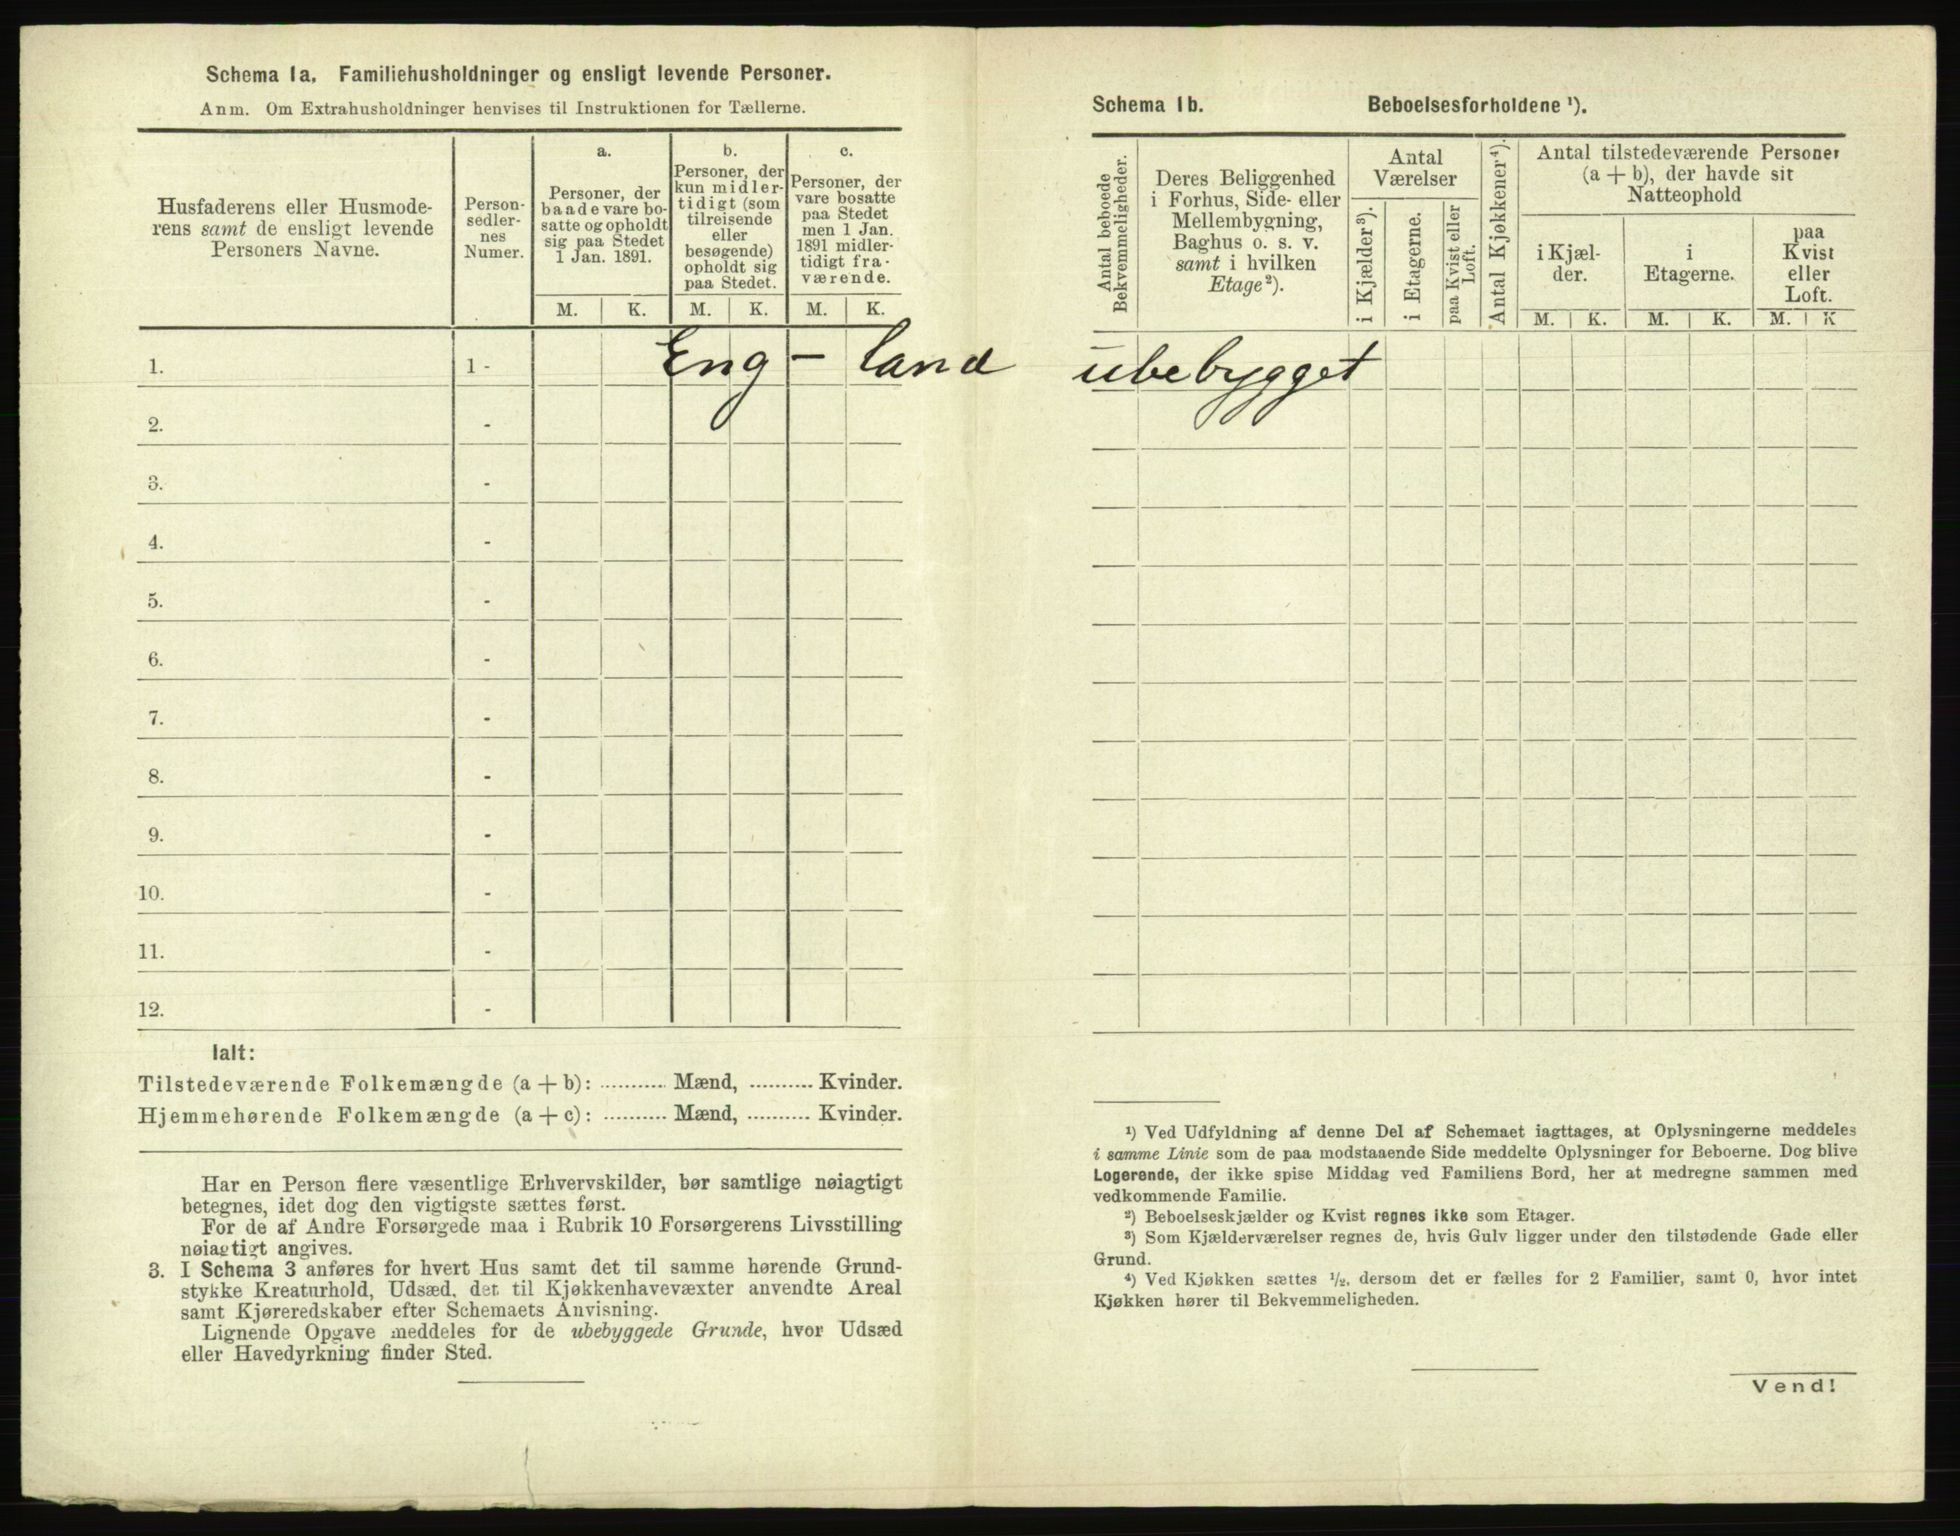 Schema 1a. Familiehusholdninger og ensligt levende Personer.
Anm. Om Extrahusholdninger henvises til Instruktionen for Tællerne.
Husfaderens eller Husmode-
rens samt de ensligt levende
Personers Navne.
Person-
sedler-
nes
Numer.
a.
Personer, der
baade vare bo-
satte og opholdt
sig paa Stedet
1 Jan. 1891.
b.
Personer, der
kun midler-
tidigt (som
tilreisende
eller
besøgende)
opholdt sig
paa Stedet.
c.
Personer, der
vare bosatte
paa Stedet
men 1 Jan.
1891 midler-
tidigt fra-
værende.
M. K. M. K. M. K.
1. 1 - Eng - land
2. -
3. -
4. -
5. -
6. -
7. -
8. -
9. -
10. -
11. -
12. -
Ialt:
Tilstedeværende Folkemængde (a + b): ........... Mænd, .......... Kvinder.
Hjemmehørende Folkemængde (a + c): .......... Mænd, .......... Kvinder.
Har en Person flere væsentlige Erhvervskilder, bør samtlige nøiagtigt
betegnes, idet dog den vigtigste sættes først.
For de af Andre Forsørgede maa i Rubrik 10 Forsørgerens Livsstilling
nøiagtigt angives.
3. I Schema 3 anføres for hvert Hus samt det til samme hørende Grund-
stykke Kreaturhold, Udsæd, det til Kjøkkenhavevæxter anvendte Areal
samt Kjøreredskaber efter Schemaets Anvisning.
Lignende Opgave meddeles for de ubebyggede Grunde, hvor Udsæd
eller Havedyrkning finder Sted.
Schema 1b. Beboelsesforholdene ¹).
Antal beboede
Bekvemmeligheder.
Deres Beliggenhed
i Forhus, Side- eller
Mellembygning,
Baghus o. s. v.
samt i hvilken
Etage ²).
Antal
Værelser
i Kjælder ³).
i Etagerne.
paa Kvist eller
Loft.
Antal Kjøkkener ⁴).
Antal tilstedeværende Personer
(a + b), der havde sit
Natteophold
i Kjæl-
der.
i
Etagerne.
paa
Kvist
eller
Loft.
M. K. M. K. M. K
ubebygget
¹) Ved Udfyldning af denne Del af Schemaet iagttages, at Oplysningerne meddeles
i samme Linie som de paa modstaaende Side meddelte Oplysninger for Beboerne. Dog blive
Logerende, der ikke spise Middag ved Familiens Bord, her at medregne sammen med
vedkommende Familie.
²) Beboelseskjælder og Kvist regnes ikke som Etager.
³) Som Kjælderværelser regnes de, hvis Gulv ligger under den tilstødende Gade eller
Grund.
⁴) Ved Kjøkken sættes ½, dersom det er fælles for 2 Familier, samt 0, hvor intet
Kjøkken hører til Bekvemmeligheden.
Vend!